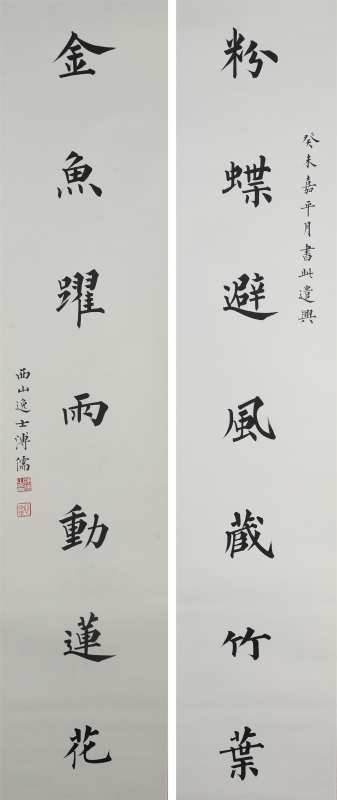 癸未嘉平月書此遣興
粉蝶避風蔵竹葉
金魚躍雨動蓮花
西山逸士溥儒